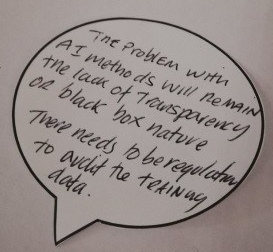 The Problem with
AI methods will remain
the lack of Transparency
or black box nature
There needs to be regulation
to audit the training
data.